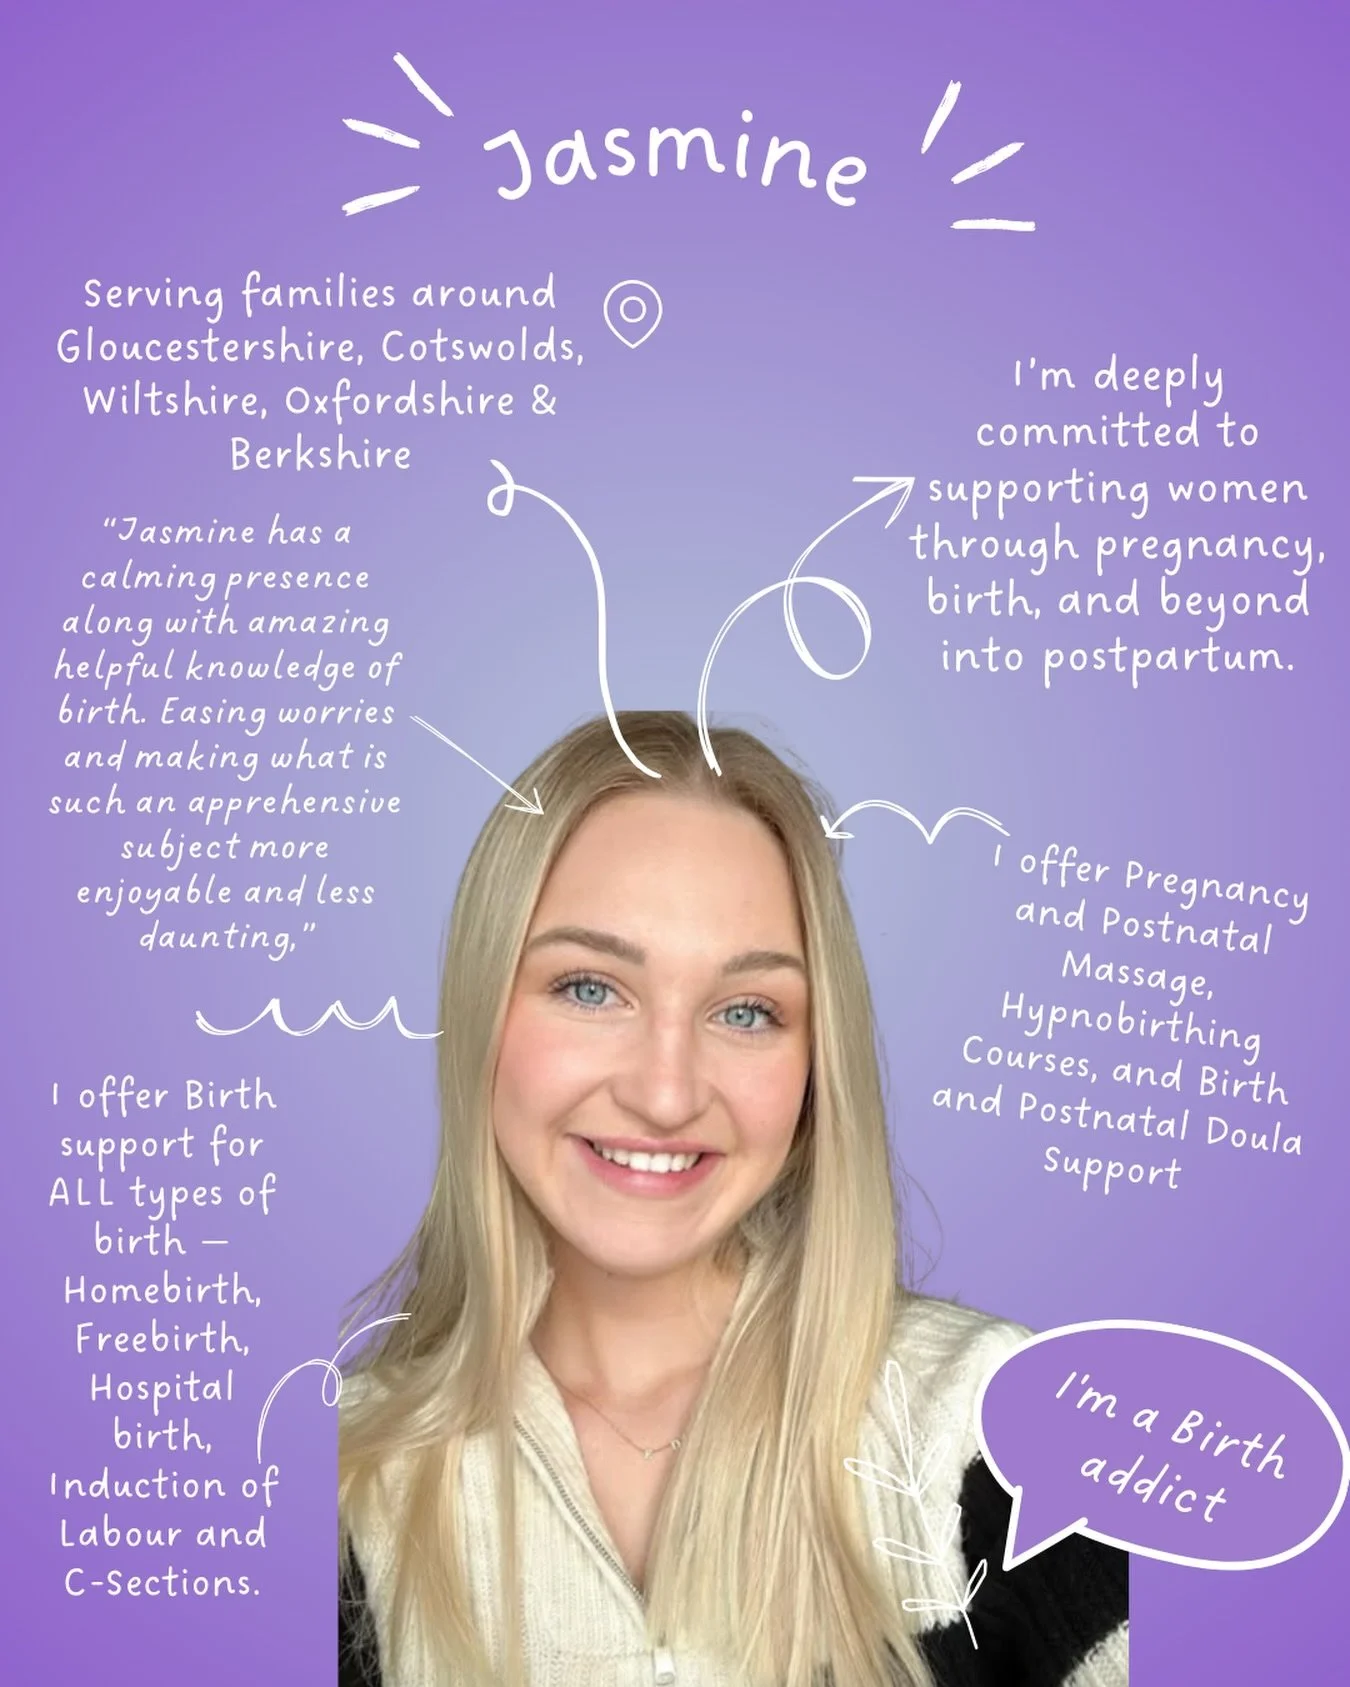 Jasmine
Serving families around
Gloucestershire, Cotswolds,
Wiltshire, Oxfordshire &
Berkshire
I'm deeply
committed to
supporting women
through pregnancy,
birth, and beyond
into postpartum.
"Jasmine has a
calming presence
along with amazing
helpful knowledge of
birth. Easing worries
and making what is
such an apprehensive
subject more
enjoyable and less
daunting,"
I offer Pregnancy
and Postnatal
Massage,
Hypnobirthing
Courses, and Birth
and Postnatal Doula
Support
I offer Birth
support for
ALL types of
birth –
Homebirth,
Freebirth,
Hospital
birth,
Induction of
Labour and
C-Sections.
I'm a Birth
addict